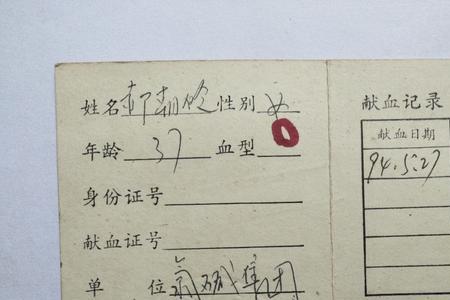 姓名 郝朝欣 性别 女 献血记录
年龄 37 血型 O 献血日期
身份证号 94.5.27
献血证号
单位 氯碱集团